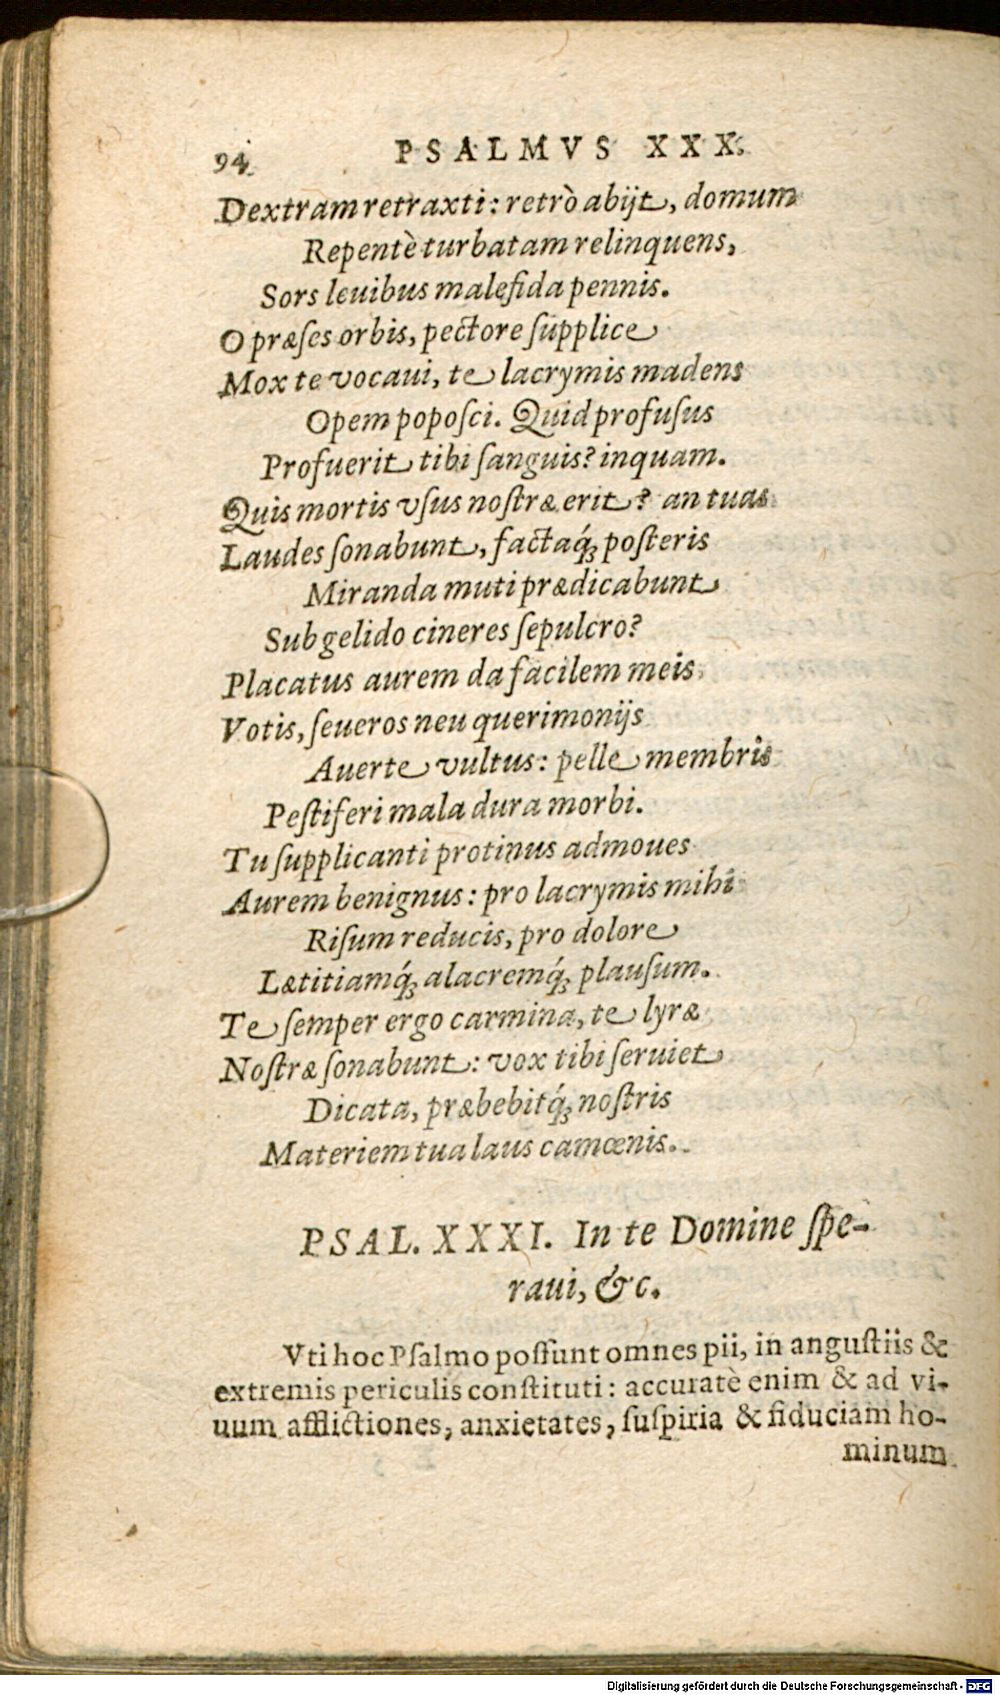 94 PSALMVS XXX.
Dextram retraxti: retrò abijt, domum
Repentè turbatam relinquens,
Sors leuibus malefida pennis.
O præſes orbis, pectore ſupplice
Mox te vocaui, te lacrymis madens
Opem popoſci. Quid profuſus
Profuerit tibi ſanguis? inquam.
Quis mortis vſus noſtræ erit? an tuas
Laudes ſonabunt, factaq́ꝫ poſteris
Miranda muti prædicabunt
Sub gelido cineres ſepulcro?
Placatus aurem da facilem meis
Votis, ſeueros neu querimonijs
Auerte vultus: pelle membris
Peſtiferi mala dura morbi.
Tu ſupplicanti protinus admoues
Aurem benignus: pro lacrymis mihi
Riſum reducis, pro dolore
Lætitiamq́ꝫ alacremq́ꝫ plauſum.
Te ſemper ergo carmina, te lyræ
Noſtræ ſonabunt: vox tibi ſeruiet
Dicata, præbebitq́ꝫ noſtris
Materiem tua laus camœnis.
PSAL. XXXI. In te Domine ſpe-
raui, &c.
Vti hoc Pſalmo poſſunt omnes pii, in anguſtiis &
extremis periculis conſtituti: accuratè enim & ad vi-
uum afflictiones, anxietates, ſuſpiria & fiduciam ho-
minum
Digitalisierung gefördert durch die Deutsche Forschungsgemeinschaft - DFG